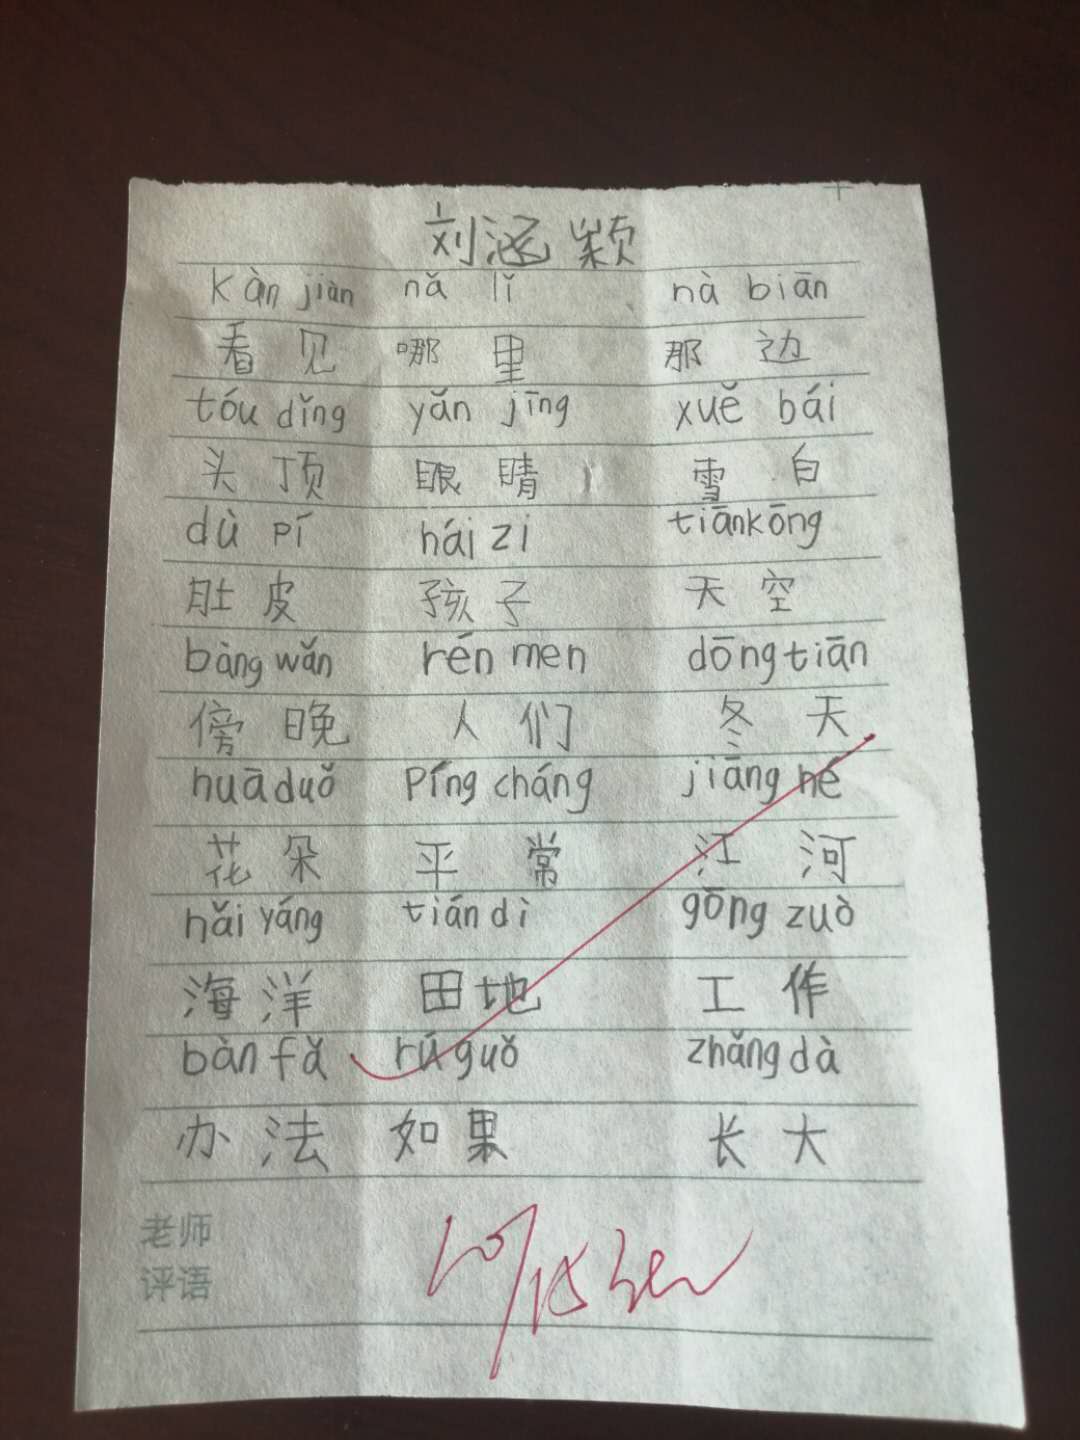 刘涵颖
kàn jiàn nǎ lǐ nà biān
看见 哪里 那边
tóu dǐng yǎn jīng xuě bái
头顶 眼睛 雪白
dù pí hái zi tiān kōng
肚皮 孩子 天空
bàng wǎn rén men dōng tiān
傍晚 人们 冬天
huā duǒ píng cháng jiāng hé
花朵 平常 江河
hǎi yáng tián dì gōng zuò
海洋 田地 工作
bàn fǎ rú guǒ zhǎng dà
办法 如果 长大
老师
评语
10/15